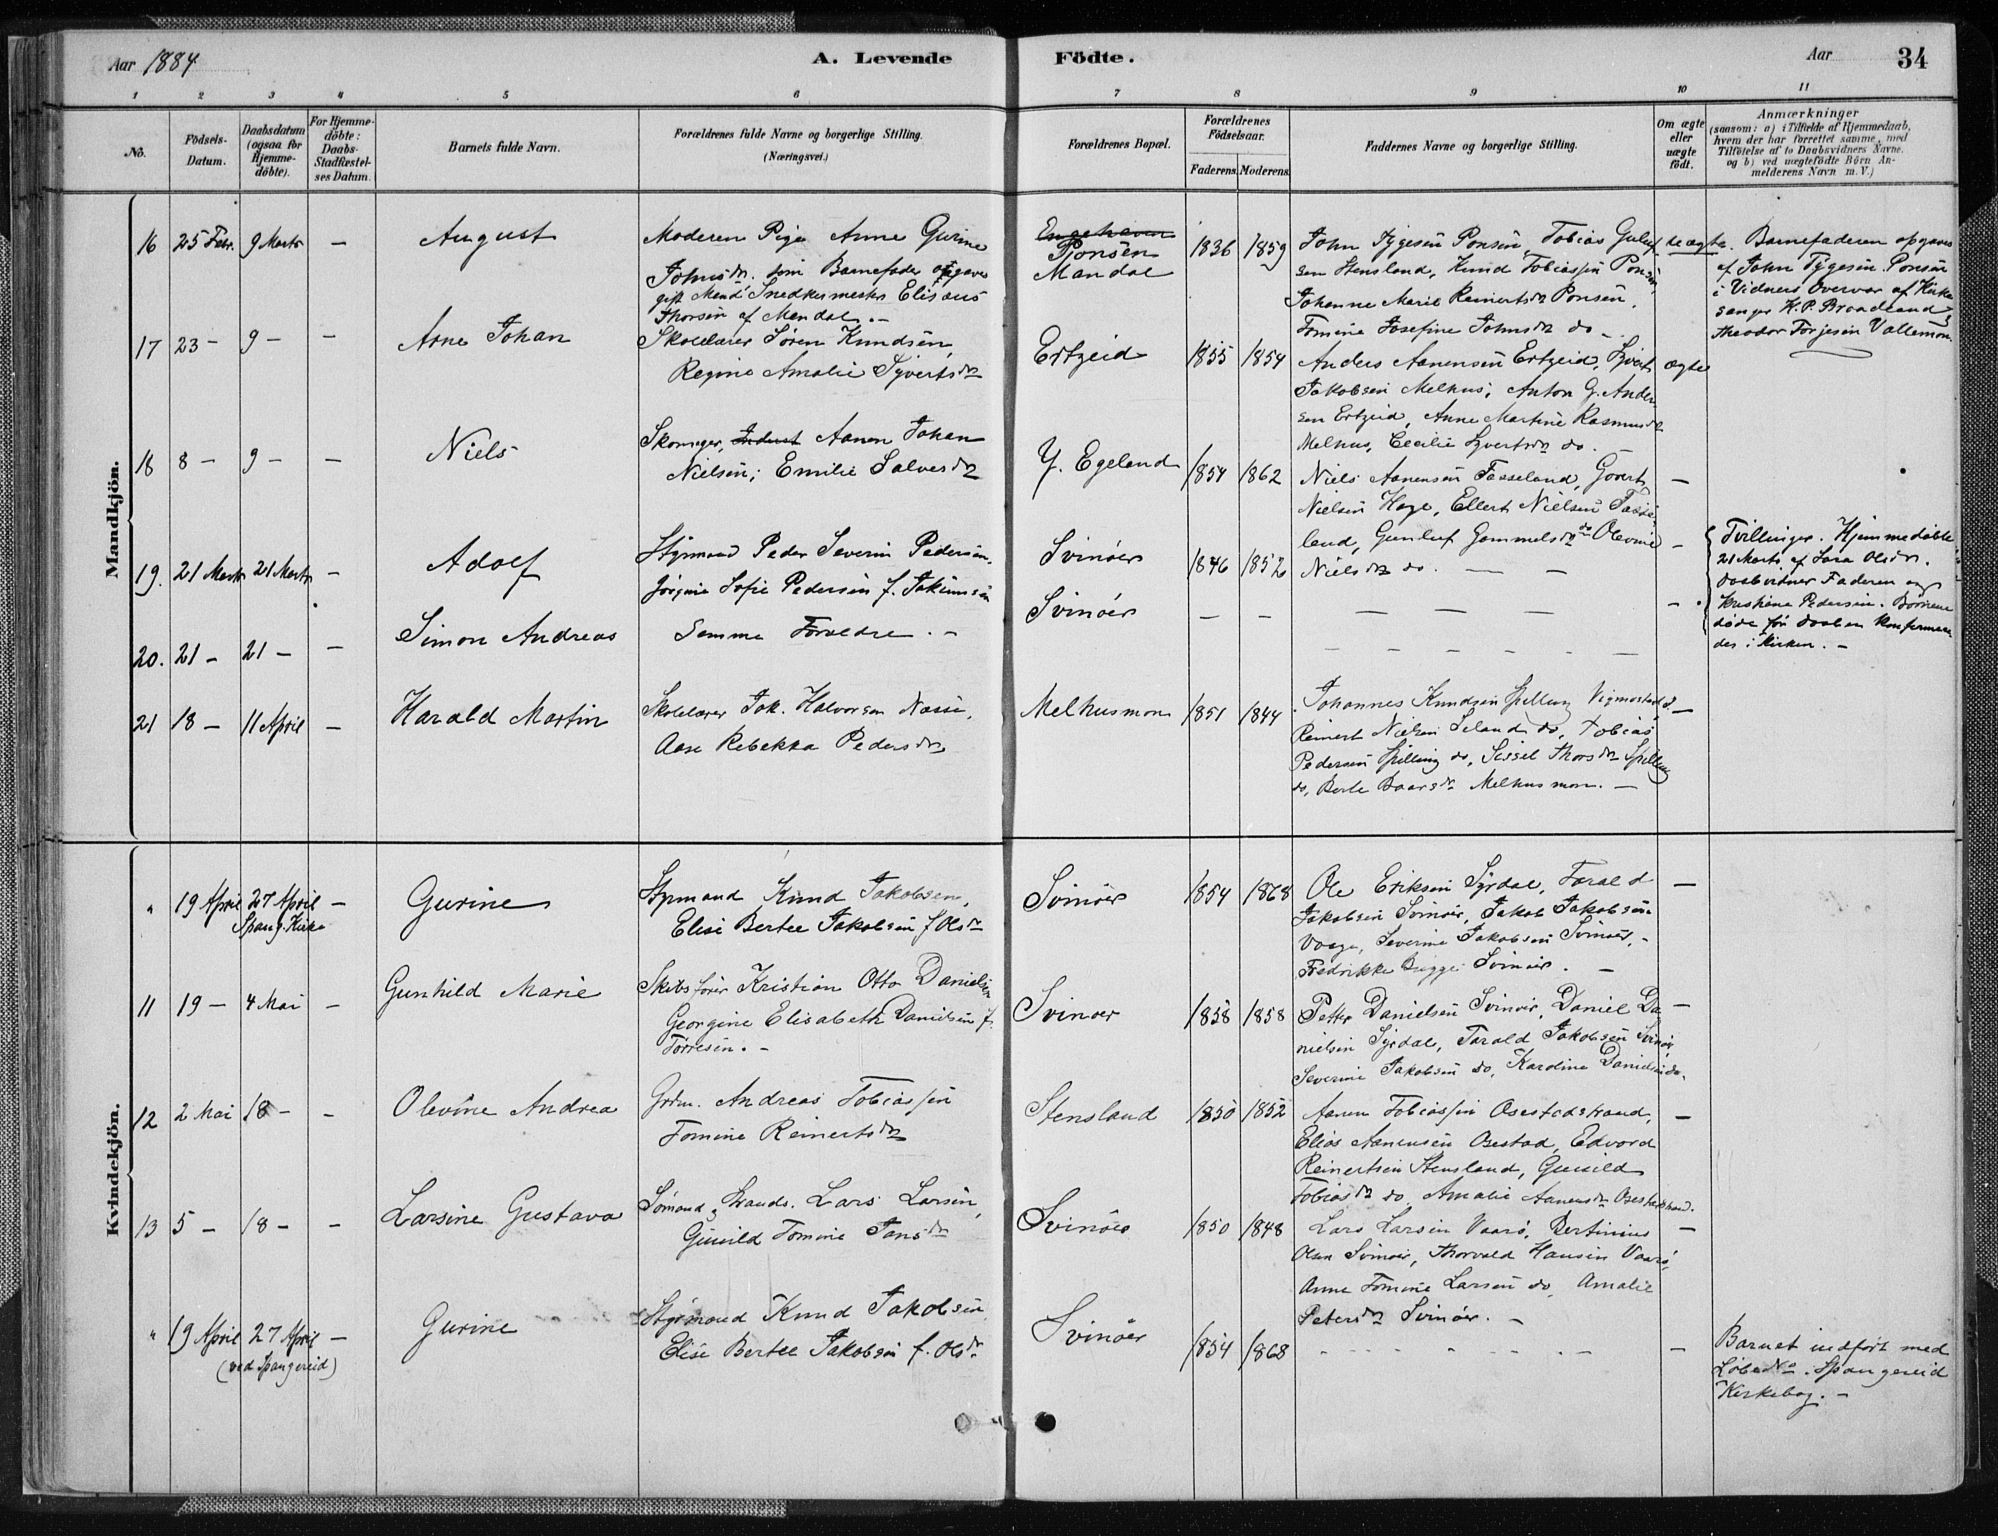 Aar 1884
A. Levende
Födte.
Aar
34
1 2 3 4 5 6 7 8 9 10 11
No.
Födsels-Datum.
Daabsdatum (ogsaa för Hjemmedöbte).
For Hjemmedöbte: Daabs-Stadfæstelses Datum.
Barnets fulde Navn.
Forældrenes fulde Navne og borgerlige Stilling.
(Næringsvei.)
Forældrenes Bopæl.
Forældrenes Födselsaar.
Faderens. Moderens.
Faddernes Navne og borgerlige Stilling.
Om ægte eller uægte födt.
Anmærkninger
(saasom: a) i Tilfælde af Hjemmedaab,
hvem der har forrettet samme, med
Tilföielse af to Daabsvidners Navne.
og b) ved uægtefödte Börn Anmelderens Navn m. V.)
Mandkjön.
16 25 Febr. 9 Marts — August
Moderen Pige Anne Gurine
Johnsdr. som Barnefader opgaves
gift Mand Snedkermester Elisæus
Thorsen af Mandal. —
Ponsen
Mandal
1836 1859
John Tygesen Ponsen, Tobias Guluf-
sen Stensland, Knud Tobiassen Ponsen,
Johanne Marie Reinertsdr Ponsen,
Tomine Josefine Johnsdr do —
uægte.
Barnefaderen opgaves
af John Tygesen Ponsen
i Vidners Overvær af Kirke-
sanger K. P. Braadland &
Theodor Torjesen Vallemon.
17 23 — 9 — — Arne Johan
Skolelærer Sören Knudsen,
Regine Amalie Syvertsdr
Ertzeid
1855 1854
Anders Aanensen Ertzeid, Syvert
Jakobsen Melhus, Anton G. Ander-
sen Ertzeid, Anne Martine Rasmusdr
Melhus, Cecilie Syvertsdr do. —
ægte
18 8 — 9 — — Niels
Skomager, Aanen Johan
Nielsen; Emilie Salvesdr
Y. Egeland
1854 1862
Niels Aanensen Fasseland, Govert
Nielsen Hage, Ellert Nielsen Fasse-
land, Gunluf Gammelsdr do Olevine
Nielsdr do. — —
—
19. 21 Marts 21 Marts — Adolf
Styrmand Peder Severin Pedersen,
Jörgine Sofie Pedersen f. Jakimsen
Svinöer
1846 1852
—
Tvillinger. Hjemmedöbte
21 Marts af Sara Olsdr.
Daabvidner Faderen og
Kristiane Pedersen. Börnene
döde för Daaben konfirmere-
des i Kirken. —
20. 21 — 21 — — Simon Andreas
Samme Forældre. —
Svinöer
— — — — —
21 18 — 11 April — Harald Martin
Skolelærer Jak. Halvorsen Næsse,
Aase Rebekka Pedersdr
Melhusmon
1851 1844
Johannes Knudsen Spilling Vigmostad s.
Reinert Nielsen Seland do, Tobias
Pedersen Spilling do, Sissel Thorsdr Spilling
do, Berte Baarsdr Melhusmon. —
—
Kvindekjön.
" 19 April 27 April — Gurine
Spang. Kirke
Styrmand Knud Jakobsen,
Elise Bertee Jakobsen f. Olsdr
Svinöer
1854 1868
Ole Eriksen Syrdal, Tarald
Jakobsen Svinöer, Jakob Jakobsen
Vaage, Severine Jakobsen Svinöer, —
Fredrikke Bugge Svinöer. —
—
11 19 — 4 Mai — Gunhild Marie
Skibsförer Kristian Otto Danielsen
Georgine Elisabeth Danielsen f.
Törresen. —
Svinöer
1858 1858
Petter Danielsen Svinöer, Daniel Da-
nielsen Syrdal, Tarald Jakobsen Svinör,
Severine Jakobsen do, Karoline Danielsen do.
—
12 2 Mai 18 — — Olevine Andrea
Grdm. Andreas Tobiassen
Tomine Reinertsdr
Stensland
1850 1852
Aanen Tobiassen Osestadstrand,
Elias Aanensen Osestad, Edvard
Reinertsen Stensland, Gunild
Tobiasdr do, Amalie Aanensdr Osestadstrand.
—
13 5 — 18 — — Larsine Gustava
Sömand & Strands. Lars Larsen,
Gunild Tomine Jansdr
Svinöer
1850 1848
Lars Larsen Vaarö, Bertinius
Olsen Svinöer, Thorvald Hansen Vaarö,
Anne Tomine Larsen do, Amalie
Petersdr Svinöer. —
—
" 19 April 27 April — Gurine
(ved Spangereid)
Styrmand Knud Jakobsen
Elise Bertee Jakobsen f. Olsdr
Svinöer
1854 1868
—
Barnet indfört med
Löbe No. i Spangereid
Kirkebog. —